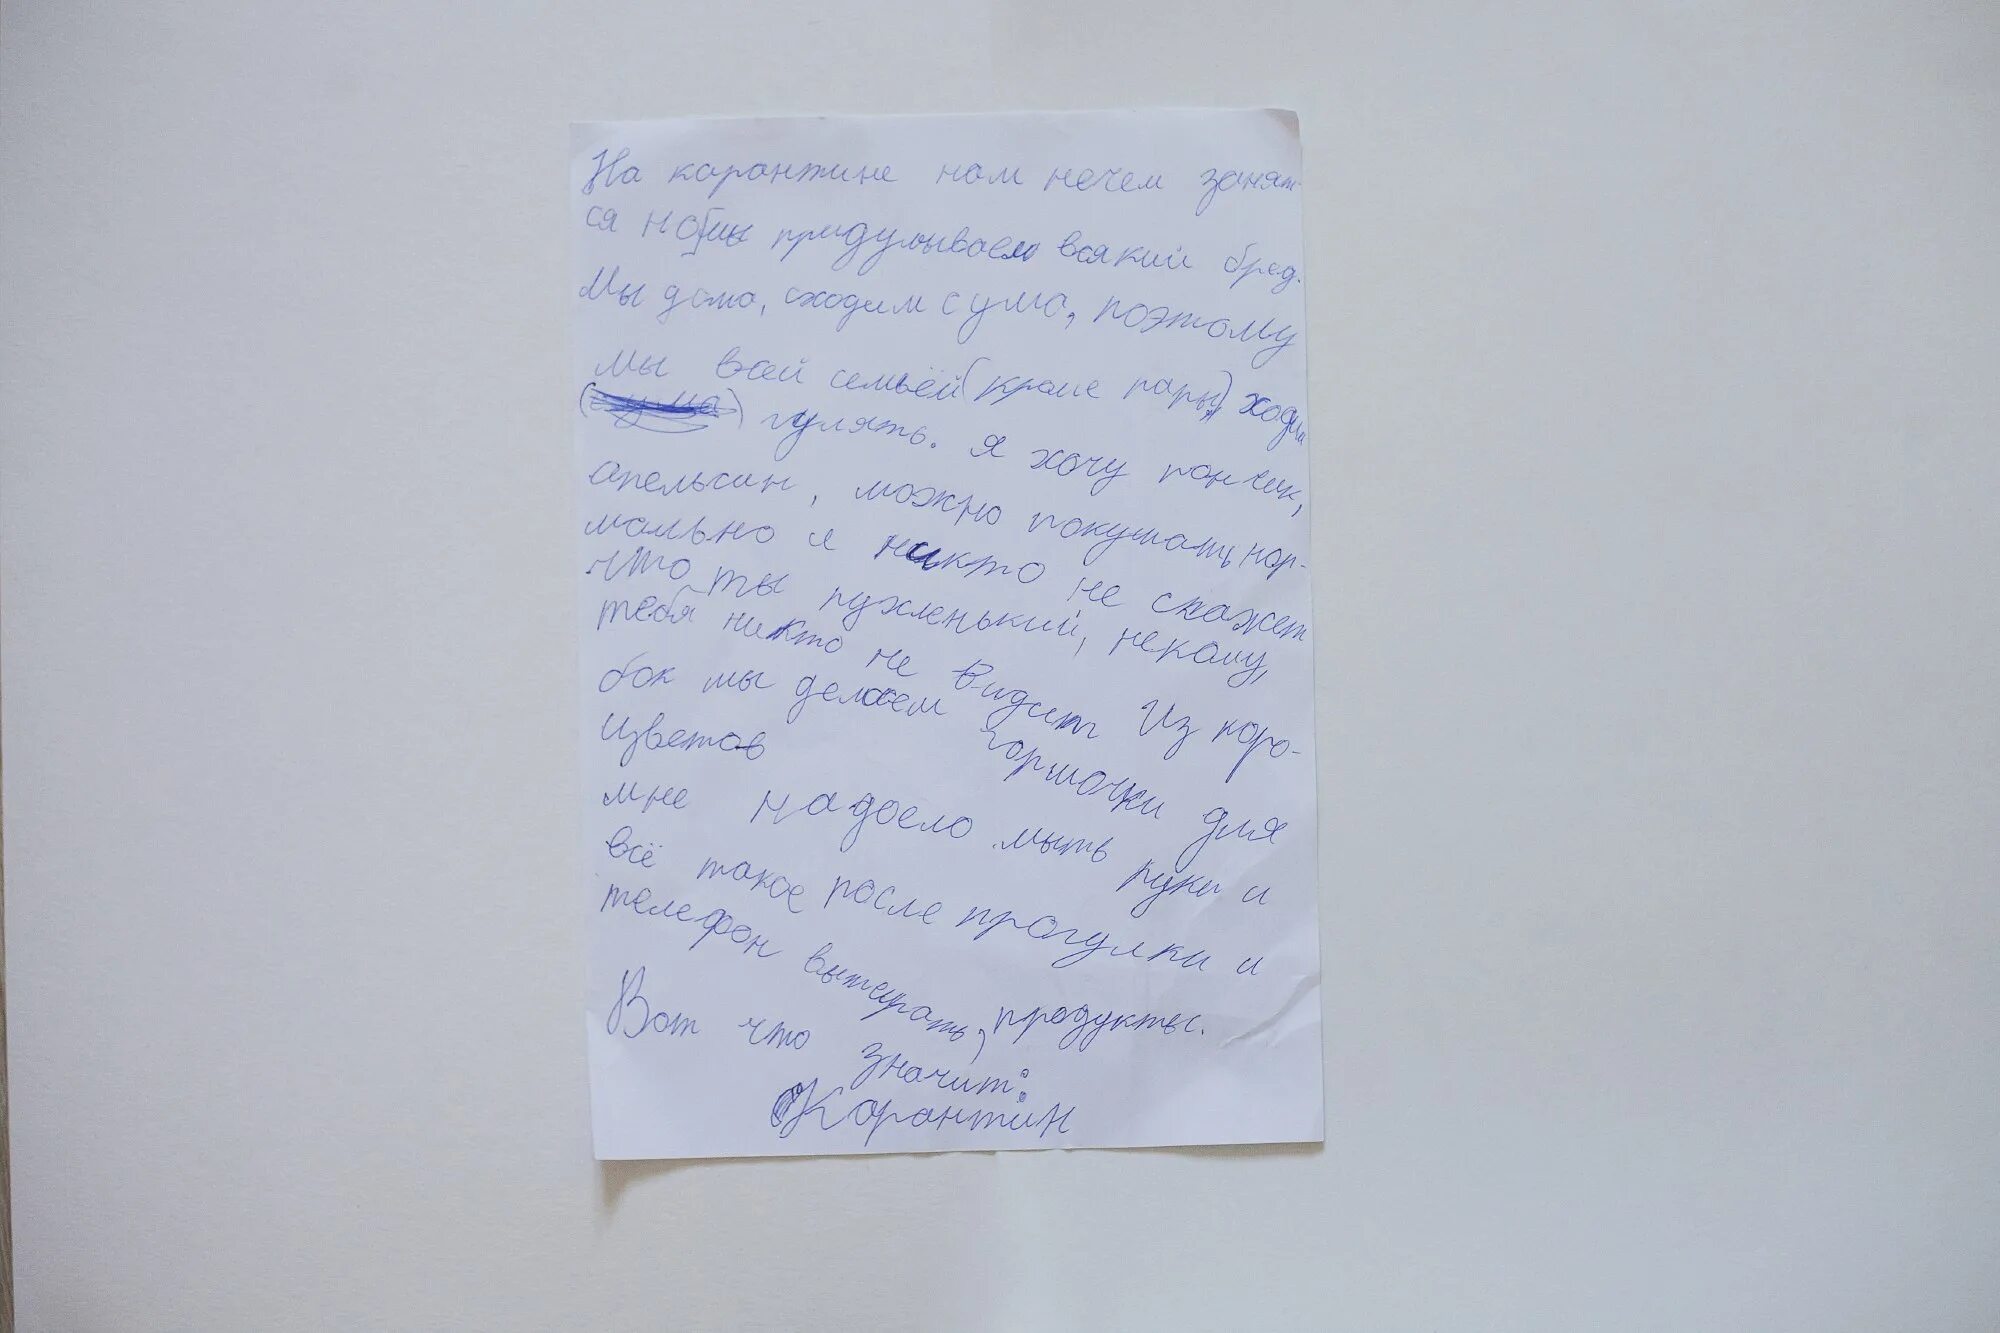 На карантине нам нечем занят-
ся но мы придумываем всякий бред.
Мы дома, сходим с ума, поэтому
мы всей семьёй (кроме папы) ходим
гулять. Я хочу пончик,
апельсин, можно покушать нор-
мально и никто не скажет
что ты пухленький, некому,
тебя никто не видит. Из коро-
бок мы делаем горшочки для
цветов
мне надоело мыть руки и
всё такое после прогулки и
телефон вытирать, продукты.
Вот что значит:
Карантин